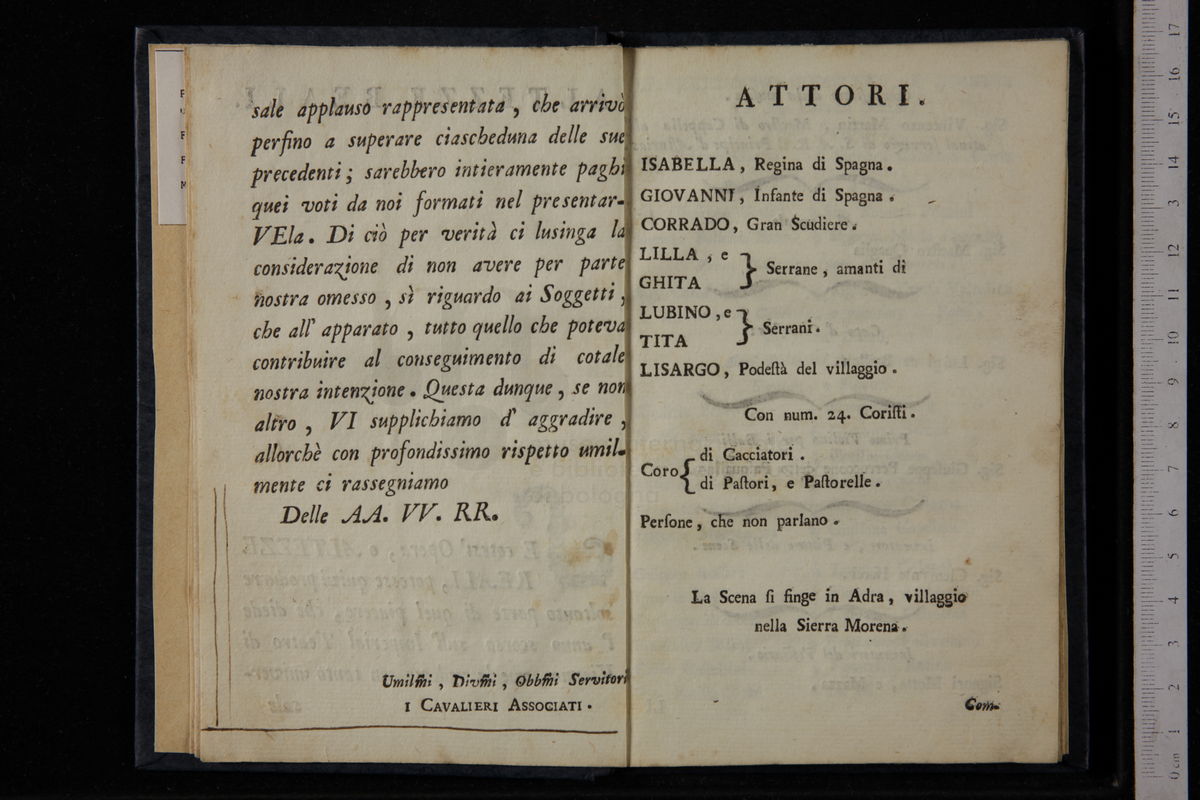 sale applauso rappresentata , che arrivò
perfino a superare ciascheduna delle sue
precedenti ; sarebbero intieramente paghi
quei voti da noi formati nel presentar-
VEla . Di ciò per verità ci lusinga la
considerazione di non avere per parte
nostra omesso , sì riguardo ai Soggetti ,
che all' apparato , tutto quello che poteva
contribuire al conseguimento di cotale
nostra intenzione . Questa dunque , se non
altro , VI supplichiamo d' aggradire ,
allorchè con profondissimo rispetto umil-
mente ci rassegniamo
Delle AA. VV. RR.
Umilm̃i , Divm̃i , Obbm̃i Servitori
I CAVALIERI ASSOCIATI .
ATTORI .
ISABELLA , Regina di Spagna .
GIOVANNI , Infante di Spagna .
CORRADO, Gran Scudiere .
LILLA , e
GHITA
} Serrane , amanti di
LUBINO , e
TITA
} Serrani .
LISARGO , Podeſtà del villaggio .
Con num. 24. Coriſti .
Coro {
di Cacciatori .
di Paſtori , e Paſtorelle .
Perſone , che non parlano .
La Scena ſi finge in Adra , villaggio
nella Sierra Morena .
Com-